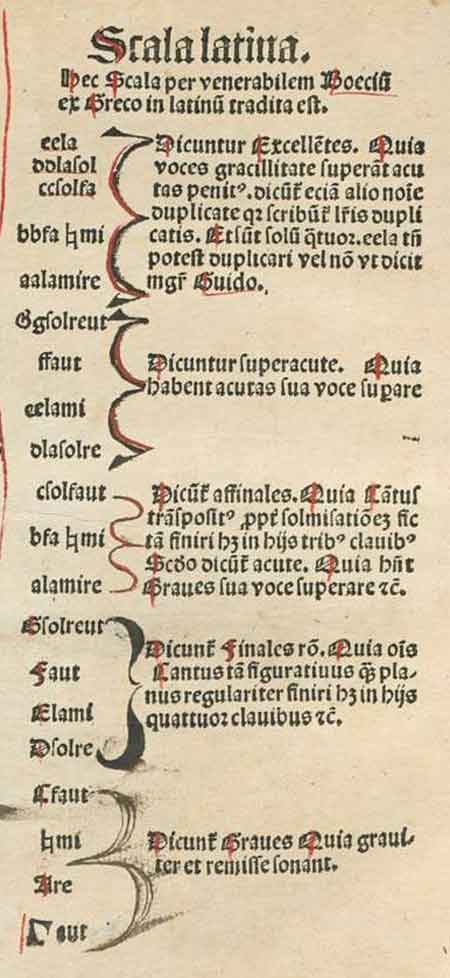 Scala latina.
Hec Scala per venerabilem Boeciū
ex Greco in latinū tradita est.
eela
ddlasol
ccsolfa
bbfa ♮mi
aalamire
Dicuntur Excellētes. Quia
voces gracillitate superāt acu
tas penitꝰ. dicūt̄ eciā alio noīe
duplicate qꝛ scribūt̄ lr̄is dupli
catis. Et sūt solū q̄tuor. eela tn̄
potest duplicari vel nō vt dicit
mgr̄ Guido.
Ggsolreut
ffaut
eelami
dlasolre
Dicuntur superacute. Quia
habent acutas sua voce suꝑare
csolfaut
bfa ♮mi
alamire
Dicūt̄ affinales. Quia Cātus
trāspositꝰ ꝓpt̄ solmisatiōeꝫ fic
tā finiri hꝫ in hijs tribꝰ clauibꝰ
Scdo dicūt̄ acute. Quia hn̄t
Graues sua voce superare ⁊c̄.
Gsolreut
Ffaut
Elami
Dsolre
Dicunt̄ Finales rō. Quia oīs
Cantus tā figuratiuus qꝫ pla-
nus regulariter finiri hꝫ in hijs
quattuor clauibus ⁊c̄.
Cfaut
♮mi
Are
Γaut
Dicunt̄ Graues Quia graui-
ter et remisse sonant.